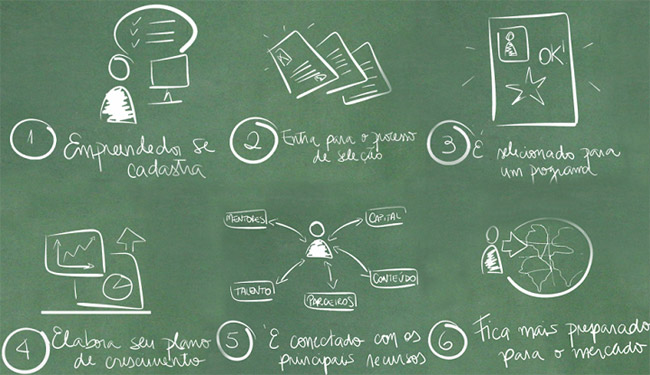 OK!
1 Empreendedor se
cadastra
2 Entra para o processo
de seleção
3 É selecionado para
um programa
MENTORES
CAPITAL
TALENTO
PARCEIROS
CONTEÚDO
4 Elabora seu plano
de crescimento
5 É conectado con os
principais recursos
6 Fica mais preparado
para o mercado